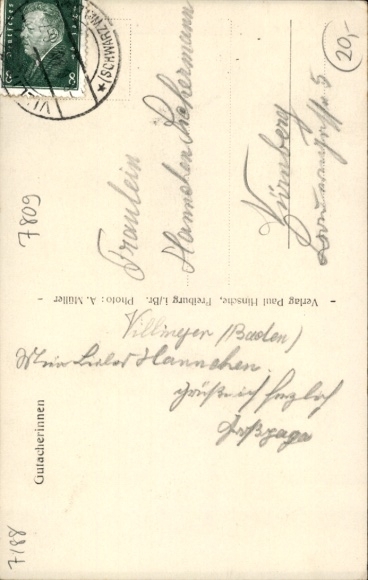 8 8
(SCHWARZWALD)
20,-
Fräulein
Hannchen Eschermann
Nürnberg
5
7809
- Verlag Paul Hinsche, Freiburg i./Br. Photo: A. Müller -
Villingen (Baden)
Mein liebes Hannchen.
Grüße ich herzlich
Gutacherinnen
7188